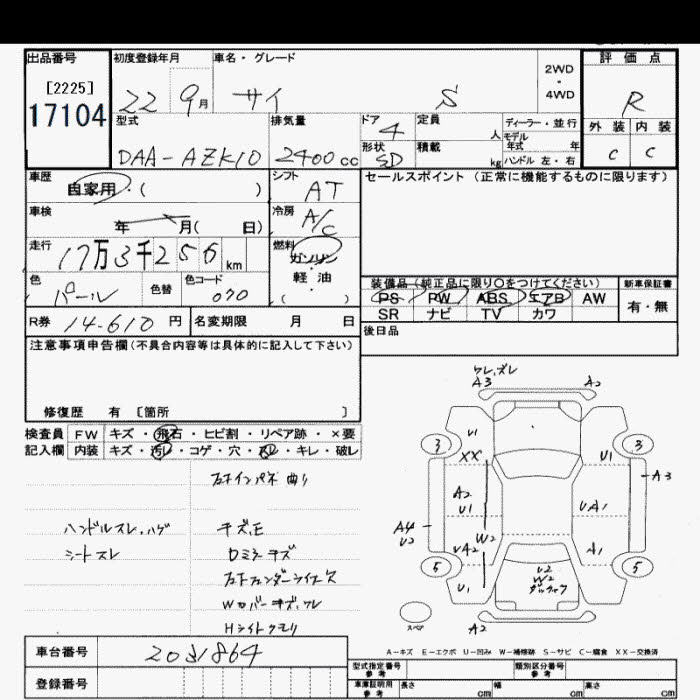 出品番号 初度登録年月 車名・グレード 評価点
[2225]
17104
22 9月 サイ S
2WD
・
4WD
R
型式 排気量 ドア 4 定員 人 ディーラー・並行
モデル
年式 年
外装 内装
DAA-AZK10 2400cc 形状 SD 積載 kg ハンドル 左・右 C C
車歴 シフト セールスポイント(正常に機能するものに限ります)
自家用・( ) AT
車検 冷房
年 月( 日) A/C
走行 燃料
17万3千256km ガソリン
軽・油
( )
色 色替 色コード
パール 070
装備品(純正品に限り○をつけてください) 新車保証書
PS PW ABS エアB AW 有・無
SR ナビ TV カワ
R券 14.610円 名変期限 月 日
後日品
注意事項申告欄(不具合内容等は具体的に記入して下さい)
修復歴 有 [箇所 ]
検査員 FW キズ・飛石・ヒビ割・リペア跡・×要
記入欄 内装 キズ・汚レ・コゲ・穴・スレ・キレ・破レ
ハンドルスレ、ハゲ
シートスレ
曲り
キズ、E
ロミラーキズ
Wロバーキズ、ワレ
Hライトクモリ
ワレ、ズレ
A3 A2
3 3
V1 U1
XX
A3
A2
U1 UA1
A4
U2
W2
UA2 A1
5 5
U2
W2
U1
スペア
A2
A-キズ E-エクボ U-凹み W-補修跡 S-サビ C-腐食 XX-交換済
車台番号 2031864
登録番号
型式指定番号
参考
類別区分番号
参考
車庫証明用
参考
長さ cm 幅 cm 高さ cm